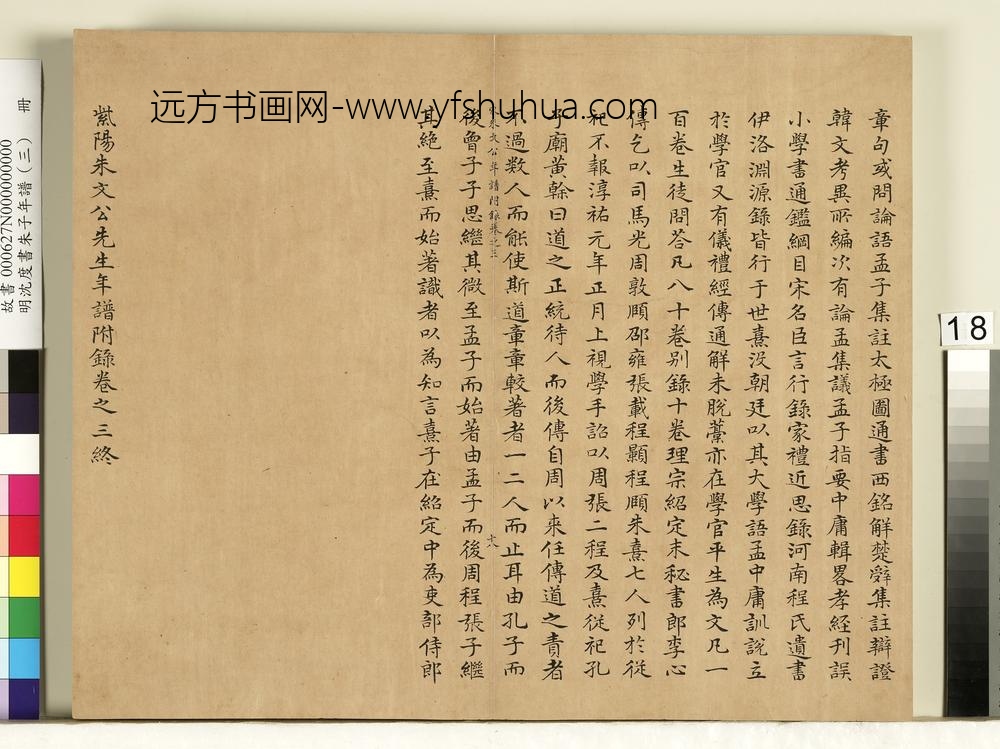 章句或問論語孟子集註太極圖通書西銘解楚辭集註辯證
韓文考異所編次有論孟集議孟子指要中庸輯畧孝經刊誤
小學書通鑑綱目宋名臣言行錄家禮近思錄河南程氏遺書
伊洛淵源錄皆行于世熹没朝廷以其大學語孟中庸訓說立
於學官又有儀禮經傳通解未脫藁亦在學官平生為文凡一
百卷生徒問荅凡八十卷别錄十卷理宗紹定末秘書郎李心
傳乞以司馬光周敦頤邵雍張載程顥程頤朱熹七人列於從
祀不報淳祐元年正月上視學手詔以周張二程及熹從祀孔
子廟黃榦曰道之正統待人而後傳自周以來任傳道之責者
不過數人而能使斯道章章較著者一二人而止耳由孔子而
朱文公年譜附錄卷之三
十八
後曾子子思繼其微至孟子而始著由孟子而後周程張子繼
其絕至熹而始著識者以為知言熹子在紹定中為吏部侍郎
紫陽朱文公先生年譜附錄卷之三終
远方书画网-www.yfshuhua.com
冊
故書000627N000000000
明沈度書朱子年譜(三)
18